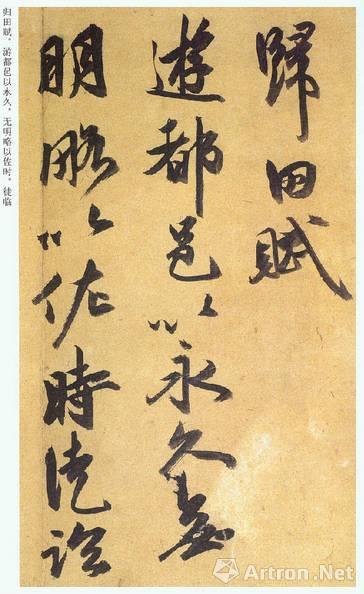 歸田賦
遊都邑以永久無
明略以佐時徒臨
归田赋，游都邑以永久，无明略以佐时。徒临
Artron.Net